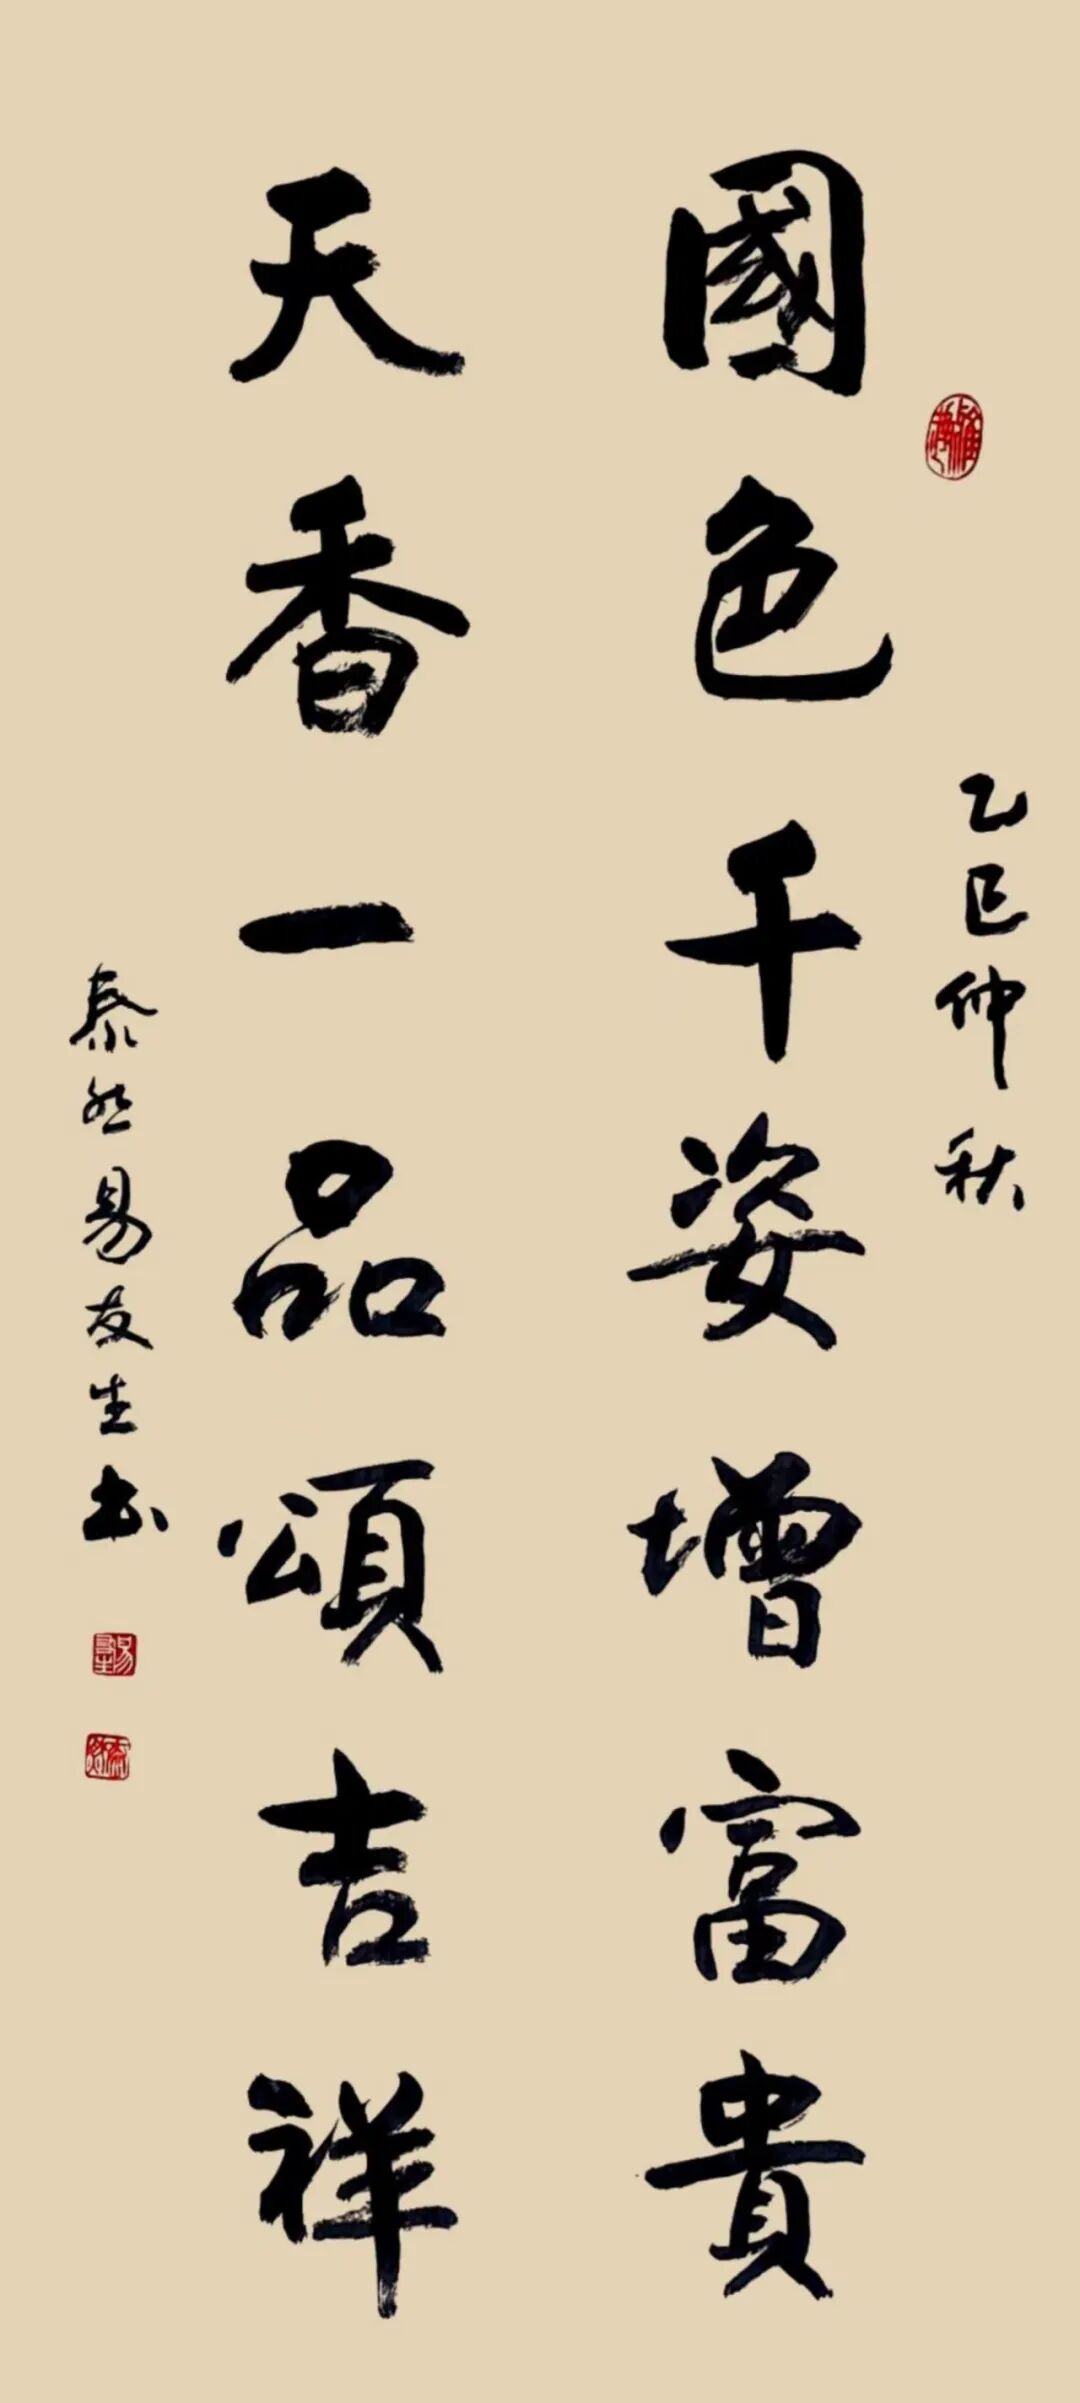 國色千姿增富貴
天香一品頌吉祥
乙巳仲秋
泰然易友生书